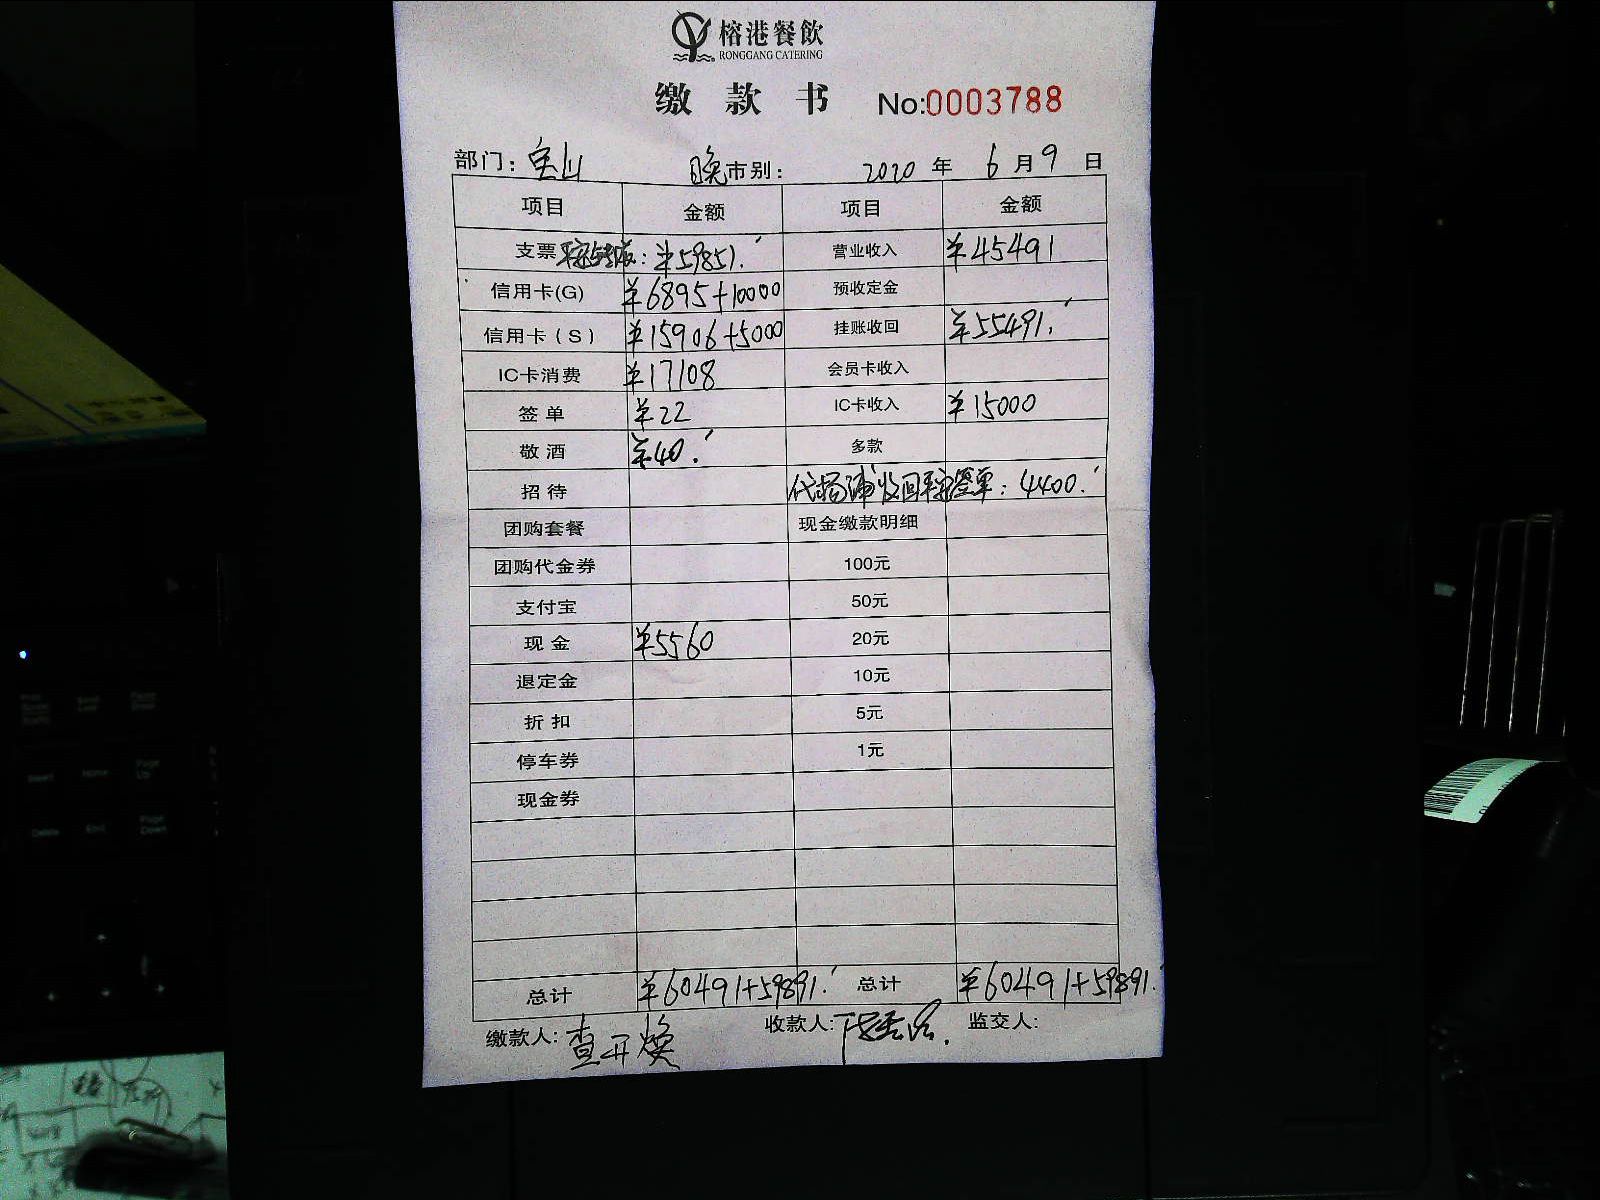 榕港餐飲
RONGGANG CATERING
缴款书 No:0003788
部门：宝山 晚市别： 2020年6月9日
项目 金额 项目 金额
支票 ￥59851. 营业收入 ￥45491
信用卡(G) ￥6895+10000 预收定金
信用卡（S） ￥15906+5000 挂账收回 ￥55491.
IC卡消费 ￥17108 会员卡收入
签单 ￥22 IC卡收入 ￥15000
敬酒 ￥40. 多款
招待 代杨浦收回 签单：4400.
团购套餐 现金缴款明细
团购代金券 100元
支付宝 50元
现金 ￥5560 20元
退定金 10元
折扣 5元
停车券 1元
现金券
总计 ￥60491+59891. 总计 ￥60491+59891.
缴款人：查开焕 收款人： 监交人：
Insert Home Page Up
Delete End Page Down